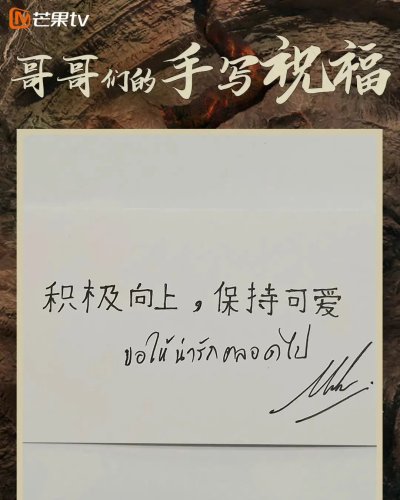 芒果tv
哥哥们的手写祝福
积极向上，保持可爱
ขอให้น่ารักตลอดไป